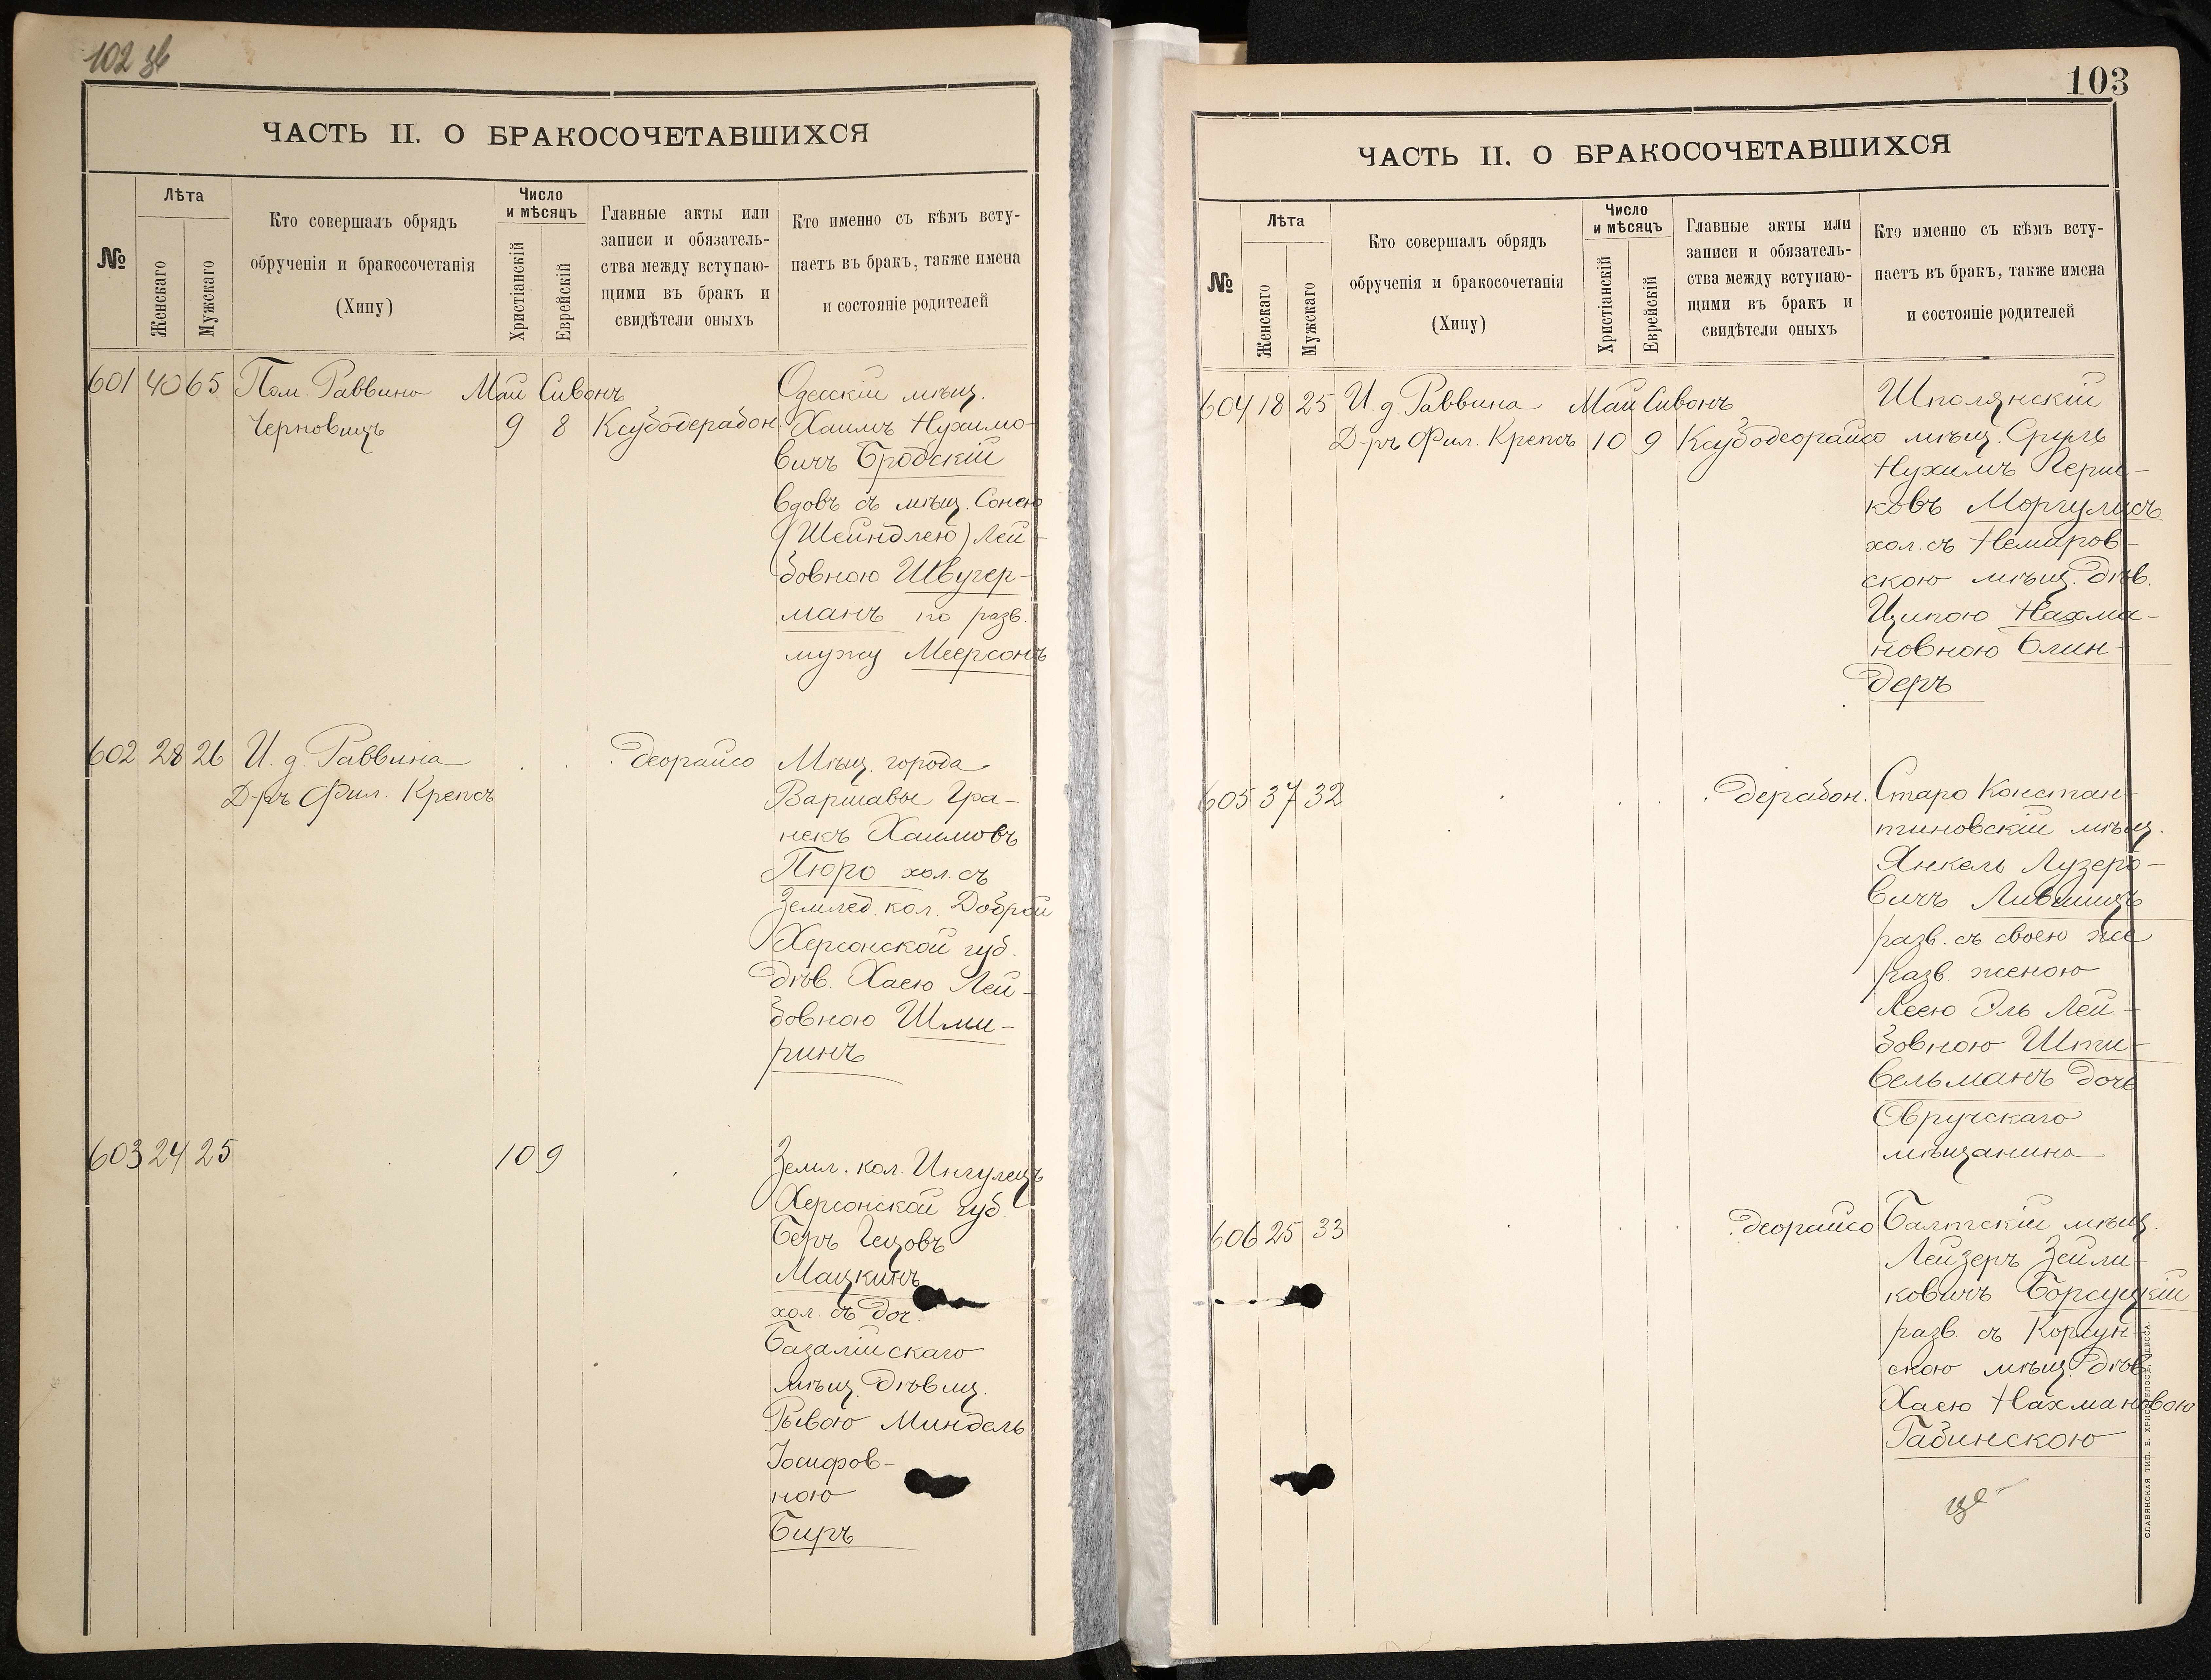 102 зв
ЧАСТЬ II. О БРАКОСОЧЕТАВШИХСЯ
№
Лѣта
Женскаго
Мужскаго
Кто совершалъ обрядъ
обрученія и бракосочетанія
(Хипу)
Число
и мѣсяцъ
Христіанскій
Еврейскій
Главные акты или
записи и обязатель-
ства между вступаю-
щими въ бракъ и
свидѣтели оныхъ
Кто именно съ кѣмъ всту-
паетъ въ бракъ, также имена
и состояніе родителей
601 40 65 Пом. Раввина Май Сивонъ
Черновицъ 9 8 Ксубодерабон.
Одесскій мѣщ.
Хаимъ Нухимо-
вичъ Бродскій
вдовъ съ мѣщ. Сонею
(Шейндлею) Лей-
бовною Швугер-
манъ по разв.
мужу Меерсонъ
602 28 26 И. д. Раввина
Д-ръ Фил. Крепсъ
деорайсо
Мѣщ. города
Варшавы Гра-
некъ Хаимовъ
Пюро хол. съ
Землед. кол. Доброй
Херсонской губ.
Дѣв. Хаею Лей-
бовною Шми-
ринъ
603 24 25 10 9
Земл. кол. Ингулецъ
Херсонской губ.
Беръ Гецовъ
Мацкинъ
хол. съ доч.
Базалійскаго
мѣщ. Дѣвиц.
Рывою Миндель
Іосифов-
ною
Биръ
103
ЧАСТЬ II. О БРАКОСОЧЕТАВШИХСЯ
№
Лѣта
Женскаго
Мужскаго
Кто совершалъ обрядъ
обрученія и бракосочетанія
(Хипу)
Число
и мѣсяцъ
Христіанскій
Еврейскій
Главные акты или
записи и обязатель-
ства между вступаю-
щими въ бракъ и
свидѣтели оныхъ
Кто именно съ кѣмъ всту-
паетъ въ бракъ, также имена
и состояніе родителей
604 18 25 И. д. Раввина Май Сивонъ
Д-ръ Фил. Крепсъ 10 9 Ксубодеорайсо
Шполянскій
мѣщ. Сруль
Нухимъ Перш-
ковъ Моргулисъ
хол. съ Немиров-
скою мѣщ. Дѣв.
Ципою Нахма-
новною Блин-
деръ
605 37 32
дерабон.
Старо Констан-
тиновскій мѣщ.
Янкель Лузеро-
вичъ Лившицъ
разв. съ своею же
разв. женою
Леею Эль Лей-
бовною Шпи-
вельманъ дочь
Овручскаго
мѣщанина
606 25 33
деорайсо
Балтскій мѣщ.
Лейзеръ Зейли-
ковичъ Борсуцкій
разв. съ Корсун-
скою мѣщ. Дѣв.
Хаею Нахмановою
Рабинскою
СЛАВЯНСКАЯ ТИП. Е. ХРИСОГЕЛОСЪ, ОДЕССА.